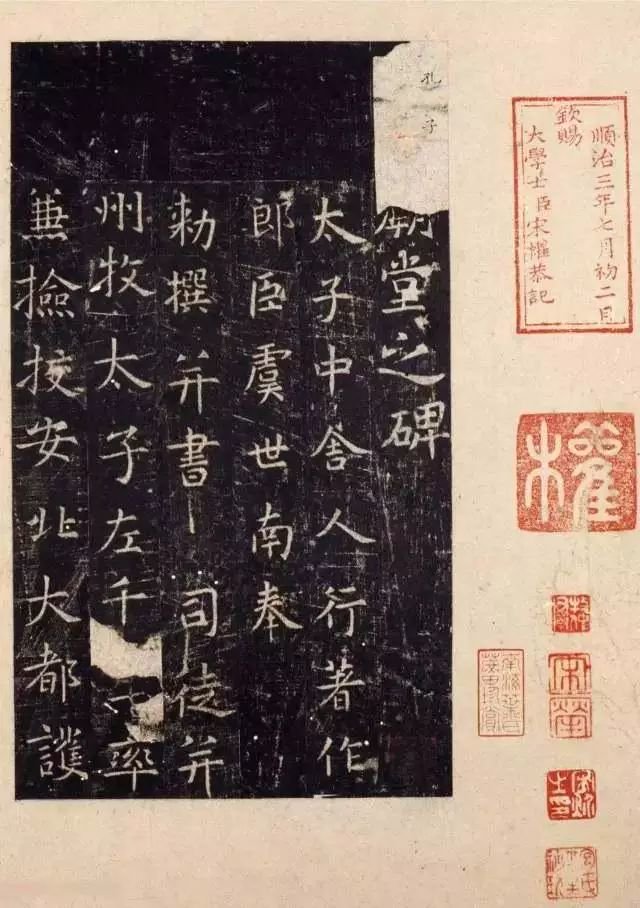 順治三年七月初二日
欽賜
大學士臣宋權恭記
權
孔子
廟堂之碑
太子中舍人行著作
郎臣虞世南奉
勑撰并書 司徒并
州牧太子左千率
兼撿挍安北大都護